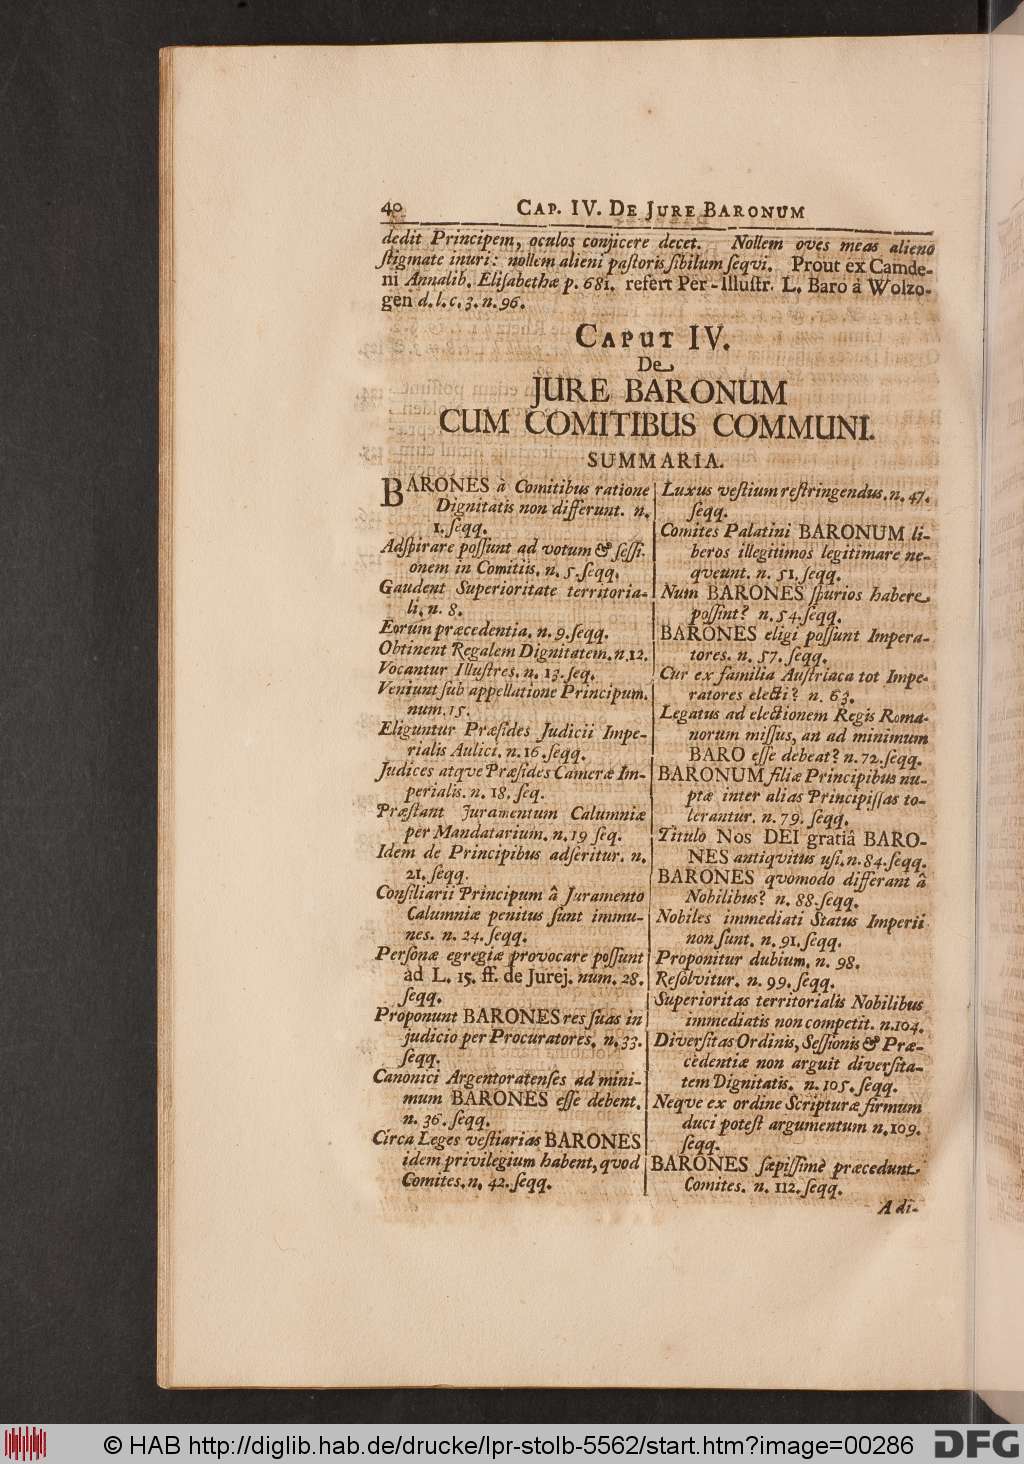 40 CAP. IV. DE JURE BARONUM
dedit Principem, oculos conjicere decet. Nollem oves meas alieno
ſtigmate inuri: nollem alieni paſtoris ſibilum ſeqvi. Prout ex Camde-
ni Annalib. Eliſabethæ p. 681. refert Per-Illuſtr. L. Baro à Wolzo-
gen d. l. c. 3. n. 96.
CAPUT IV.
De
JURE BARONUM
CUM COMITIBUS COMMUNI.
SUMMARIA.
BARONES à Comitibus ratione
Dignitatis non differunt. n.
1. ſeqq.
Adſpirare poſſunt ad votum & ſeſſi-
onem in Comitiis. n. 5. ſeqq.
Gaudent Superioritate territoria-
li. n. 8.
Eorum præcedentia. n. 9. ſeqq.
Obtinent Regalem Dignitatem. n. 12.
Vocantur Illuſtres. n. 13. ſeq.
Veniunt ſub appellatione Principum.
num. 15.
Eliguntur Præſides Judicii Impe-
rialis Aulici. n. 16. ſeqq.
Judices atqve Præſides Cameræ Im-
perialis. n. 18. ſeq.
Præſtant Juramentum Calumniæ
per Mandatarium. n. 19 ſeq.
Idem de Principibus adſeritur. n.
21. ſeqq.
Conſiliarii Principum â Juramento
Calumniæ penitus ſunt immu-
nes. n. 24. ſeqq.
Perſonæ egregiæ provocare poſſunt
ad L. 15. ff. de Jurej. num. 28.
ſeqq.
Proponunt BARONES res ſuas in
judicio per Procuratores. n. 33.
ſeqq.
Canonici Argentoratenſes ad mini-
mum BARONES eſſe debent.
n. 36. ſeqq.
Circa Leges veſtiarias BARONES
idem privilegium habent, qvod
Comites. n. 42. ſeqq.
Luxus veſtium reſtringendus. n. 47.
ſeqq.
Comites Palatini BARONUM li-
beros illegitimos legitimare ne-
qveunt. n. 51. ſeqq.
Num BARONES ſpurios habere
poſſint? n. 54. ſeqq.
BARONES eligi poſſunt Impera-
tores. n. 57. ſeqq.
Cur ex familia Auſtriaca tot Impe-
ratores electi? n. 63.
Legatus ad electionem Regis Roma-
norum miſſus, an ad minimum
BARO eſſe debeat? n. 72. ſeqq.
BARONUM filiæ Principibus nu-
ptæ inter alias Principiſſas to-
lerantur. n. 79. ſeqq.
Titulo Nos DEI gratiâ BARO-
NES antiqvitus uſi. n. 84. ſeqq.
BARONES qvomodo differant â
Nobilibus? n. 88. ſeqq.
Nobiles immediati Status Imperii
non ſunt. n. 91. ſeqq.
Proponitur dubium. n. 98.
Reſolvitur. n. 99. ſeqq.
Superioritas territorialis Nobilibus
immediatis non competit. n. 104.
Diverſitas Ordinis, Seſſionis & Præ-
cedentiæ non arguit diverſita-
tem Dignitatis. n. 105. ſeqq.
Neqve ex ordine Scripturæ firmum
duci poteſt argumentum n. 109.
ſeqq.
BARONES ſæpiſſimè præcedunt
Comites. n. 112. ſeqq.
Adi-
© HAB http://diglib.hab.de/drucke/lpr-stolb-5562/start.htm?image=00286
DFG